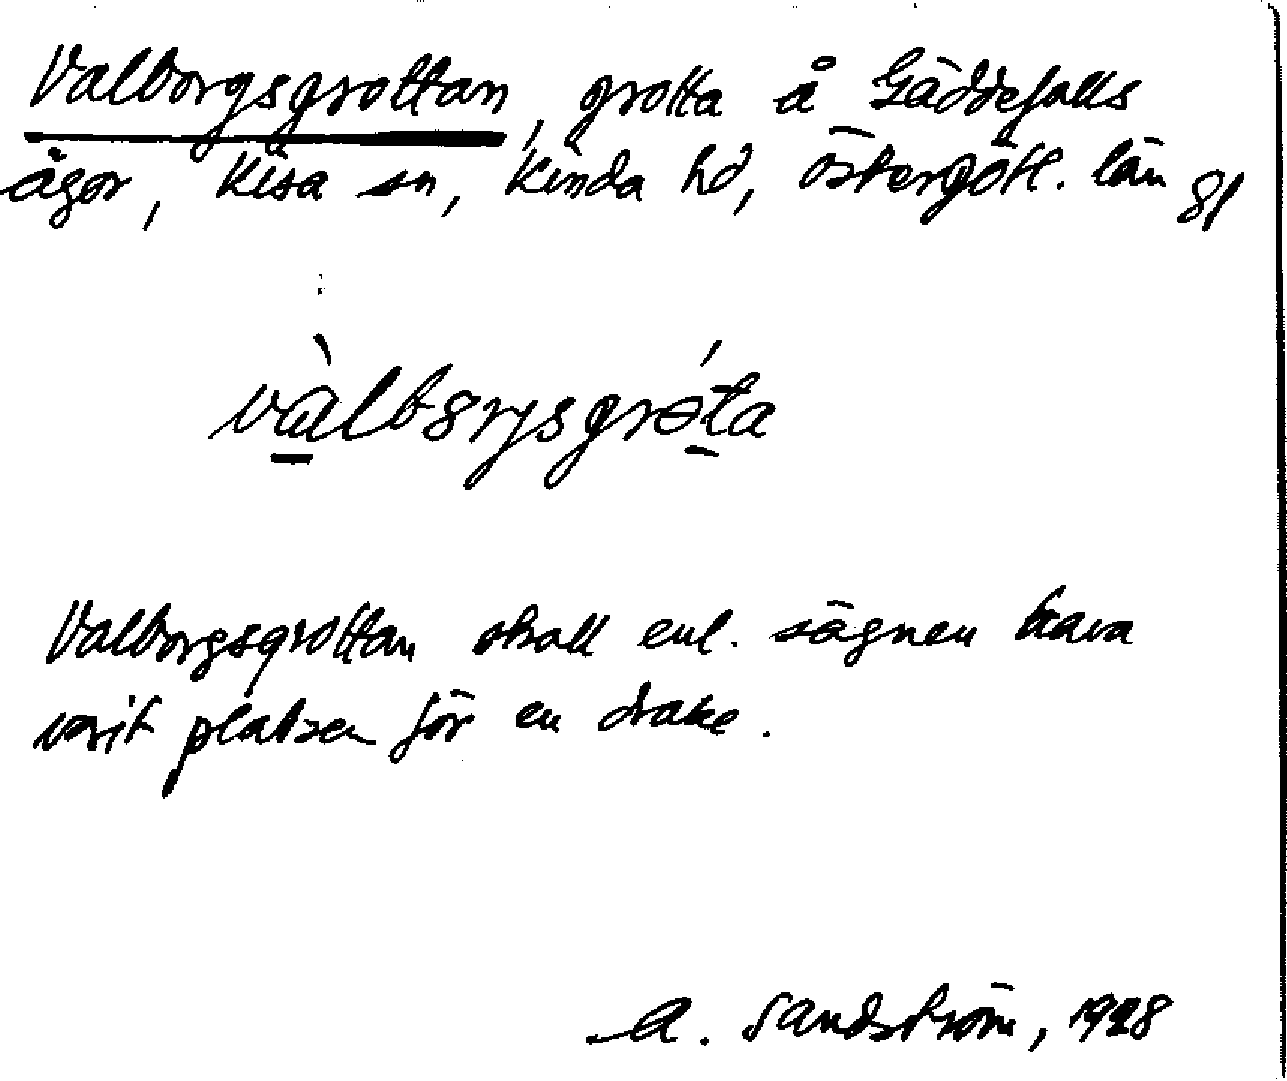 Valborgsgrottan, grotta å Gäddefalls
ägor, Kisa sn, Kinda hd, Östergötl. län 81
vàlbsrysgróta
Valborgsgrottan skall enl. sägnen hava
varit platsen för en drake.
A. Sandström, 1928